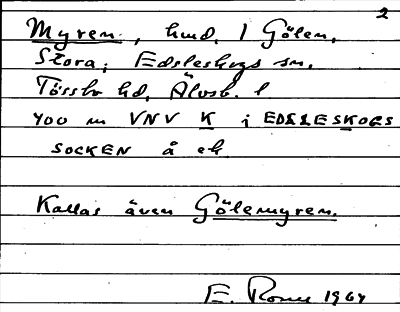 2
Myren, hmd. 1 Gölen,
Stora, Edsleskogs sn,
Tössbo hd, Älvsb. l
400 m VNV K i EDSLESKOGS
SOCKEN å ek
Kallas även Gölemyren.
E. 1964